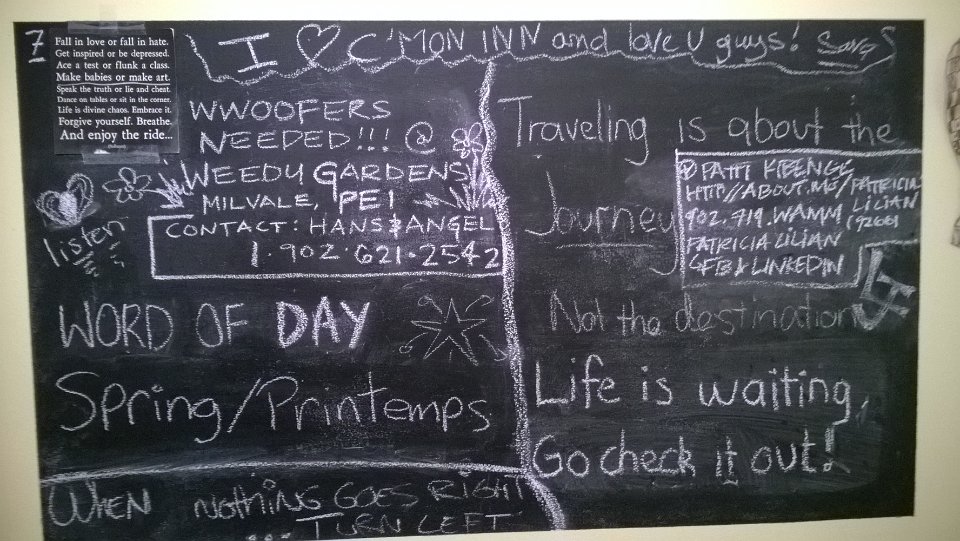 7
Fall in love or fall in hate.
Get inspired or be depressed.
Ace a test or flunk a class.
Make babies or make art.
Speak the truth or lie and cheat.
Dance on tables or sit in the corner.
Life is divine chaos. Embrace it.
Forgive yourself. Breathe.
And enjoy the ride...
I C'MON INN and love U guys!
WWOOFERS
NEEDED!!! @
WEEDY GARDENS
MILVALE, PEI
CONTACT: HANS & ANGEL
1.902.621.2542
listen
WORD OF DAY
Spring/Printemps
WHEN NOTHING GOES RIGHT
... TURN LEFT
Traveling is about the
Journey
PATTI
HTTP//ABOUT.ME/PATRICIA
LILIAN
902.719.WAMM (9266)
PATRICIA LILIAN
FB & LINKEDIN
Not the destination
Life is waiting,
Go check it out!